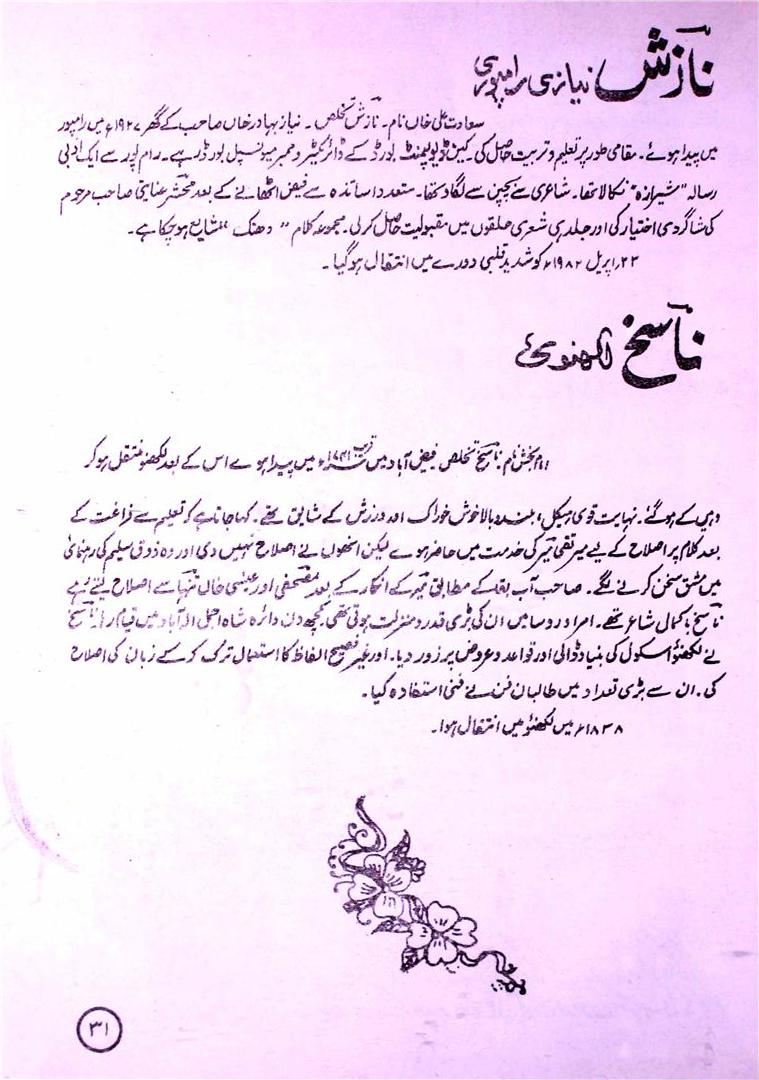 نازش نیازی رامپوری
سعادت علی خاں نام۔ نازش تخلص۔ نیاز بہادر خاں صاحب کے گھر ۱۹۲۷ء میں رامپور
میں پیدا ہوئے۔ مقامی طور پر تعلیم و تربیت حاصل کی۔ کین ڈیولپمنٹ بورڈ کے ڈائرکٹر و ممبر میونسپل بورڈ رہے۔ رام پور سے ایک ادبی
رسالہ "شیرازہ" نکالا تھا۔ شاعری سے بچپن سے لگاؤ تھا۔ متعدد اساتذہ سے فیض اٹھانے کے بعد محشر عنایتی صاحب مرحوم
کی شاگردی اختیار کی اور جلد ہی شعری حلقوں میں مقبولیت حاصل کرلی۔ مجموعہ کلام "دھنک" شایع ہو چکا ہے۔
۲۳؍ اپریل ۱۹۸۲ء کو شدید قلبی دورے میں انتقال ہو گیا۔
ناسخ لکھنوی
امام بخش نام ناسخ تخلص فیض آباد میں قریب میں پیدا ہوے اس کے بعد لکھنؤ منتقل ہو کر
وہیں کے ہو گئے۔ نہایت قوی ہیکل، بلند و بالا خوش خوراک اور ورزش کے شایق تھے۔ کہا جاتا ہے کہ تعلیم سے فراغت کے
بعد کلام پر اصلاح کے لیے میر تقی میر کی خدمت میں حاضر ہوے لیکن انھوں نے اصلاح نہیں دی اور وہ ذوق سلیم کی رہنمائی
میں مشق سخن کرنے لگے۔ صاحب آب بقا کے مطابق میر کے انکار کے بعد مصحفی اور عیسیٰ خاں تنہا سے اصلاح لیتے رہے
ناسخ باکمال شاعر تھے۔ امراء و رؤسا میں ان کی بڑی قدر و منزلت ہوتی تھی۔ کچھ دن دائرہ شاہ اجمل الہ آباد میں قیام رہا۔ ناسخ
نے لکھنؤ اسکول کی بنیاد ڈالی اور قواعد و عروض پر زور دیا۔ اور غیر فصیح الفاظ کا استعمال ترک کر کے زبان کی اصلاح
کی۔ ان سے بڑی تعداد میں طالبان فن نے فنی استفادہ کیا۔
۱۸۳۸ء میں لکھنؤ میں انتقال ہوا۔
۳۱